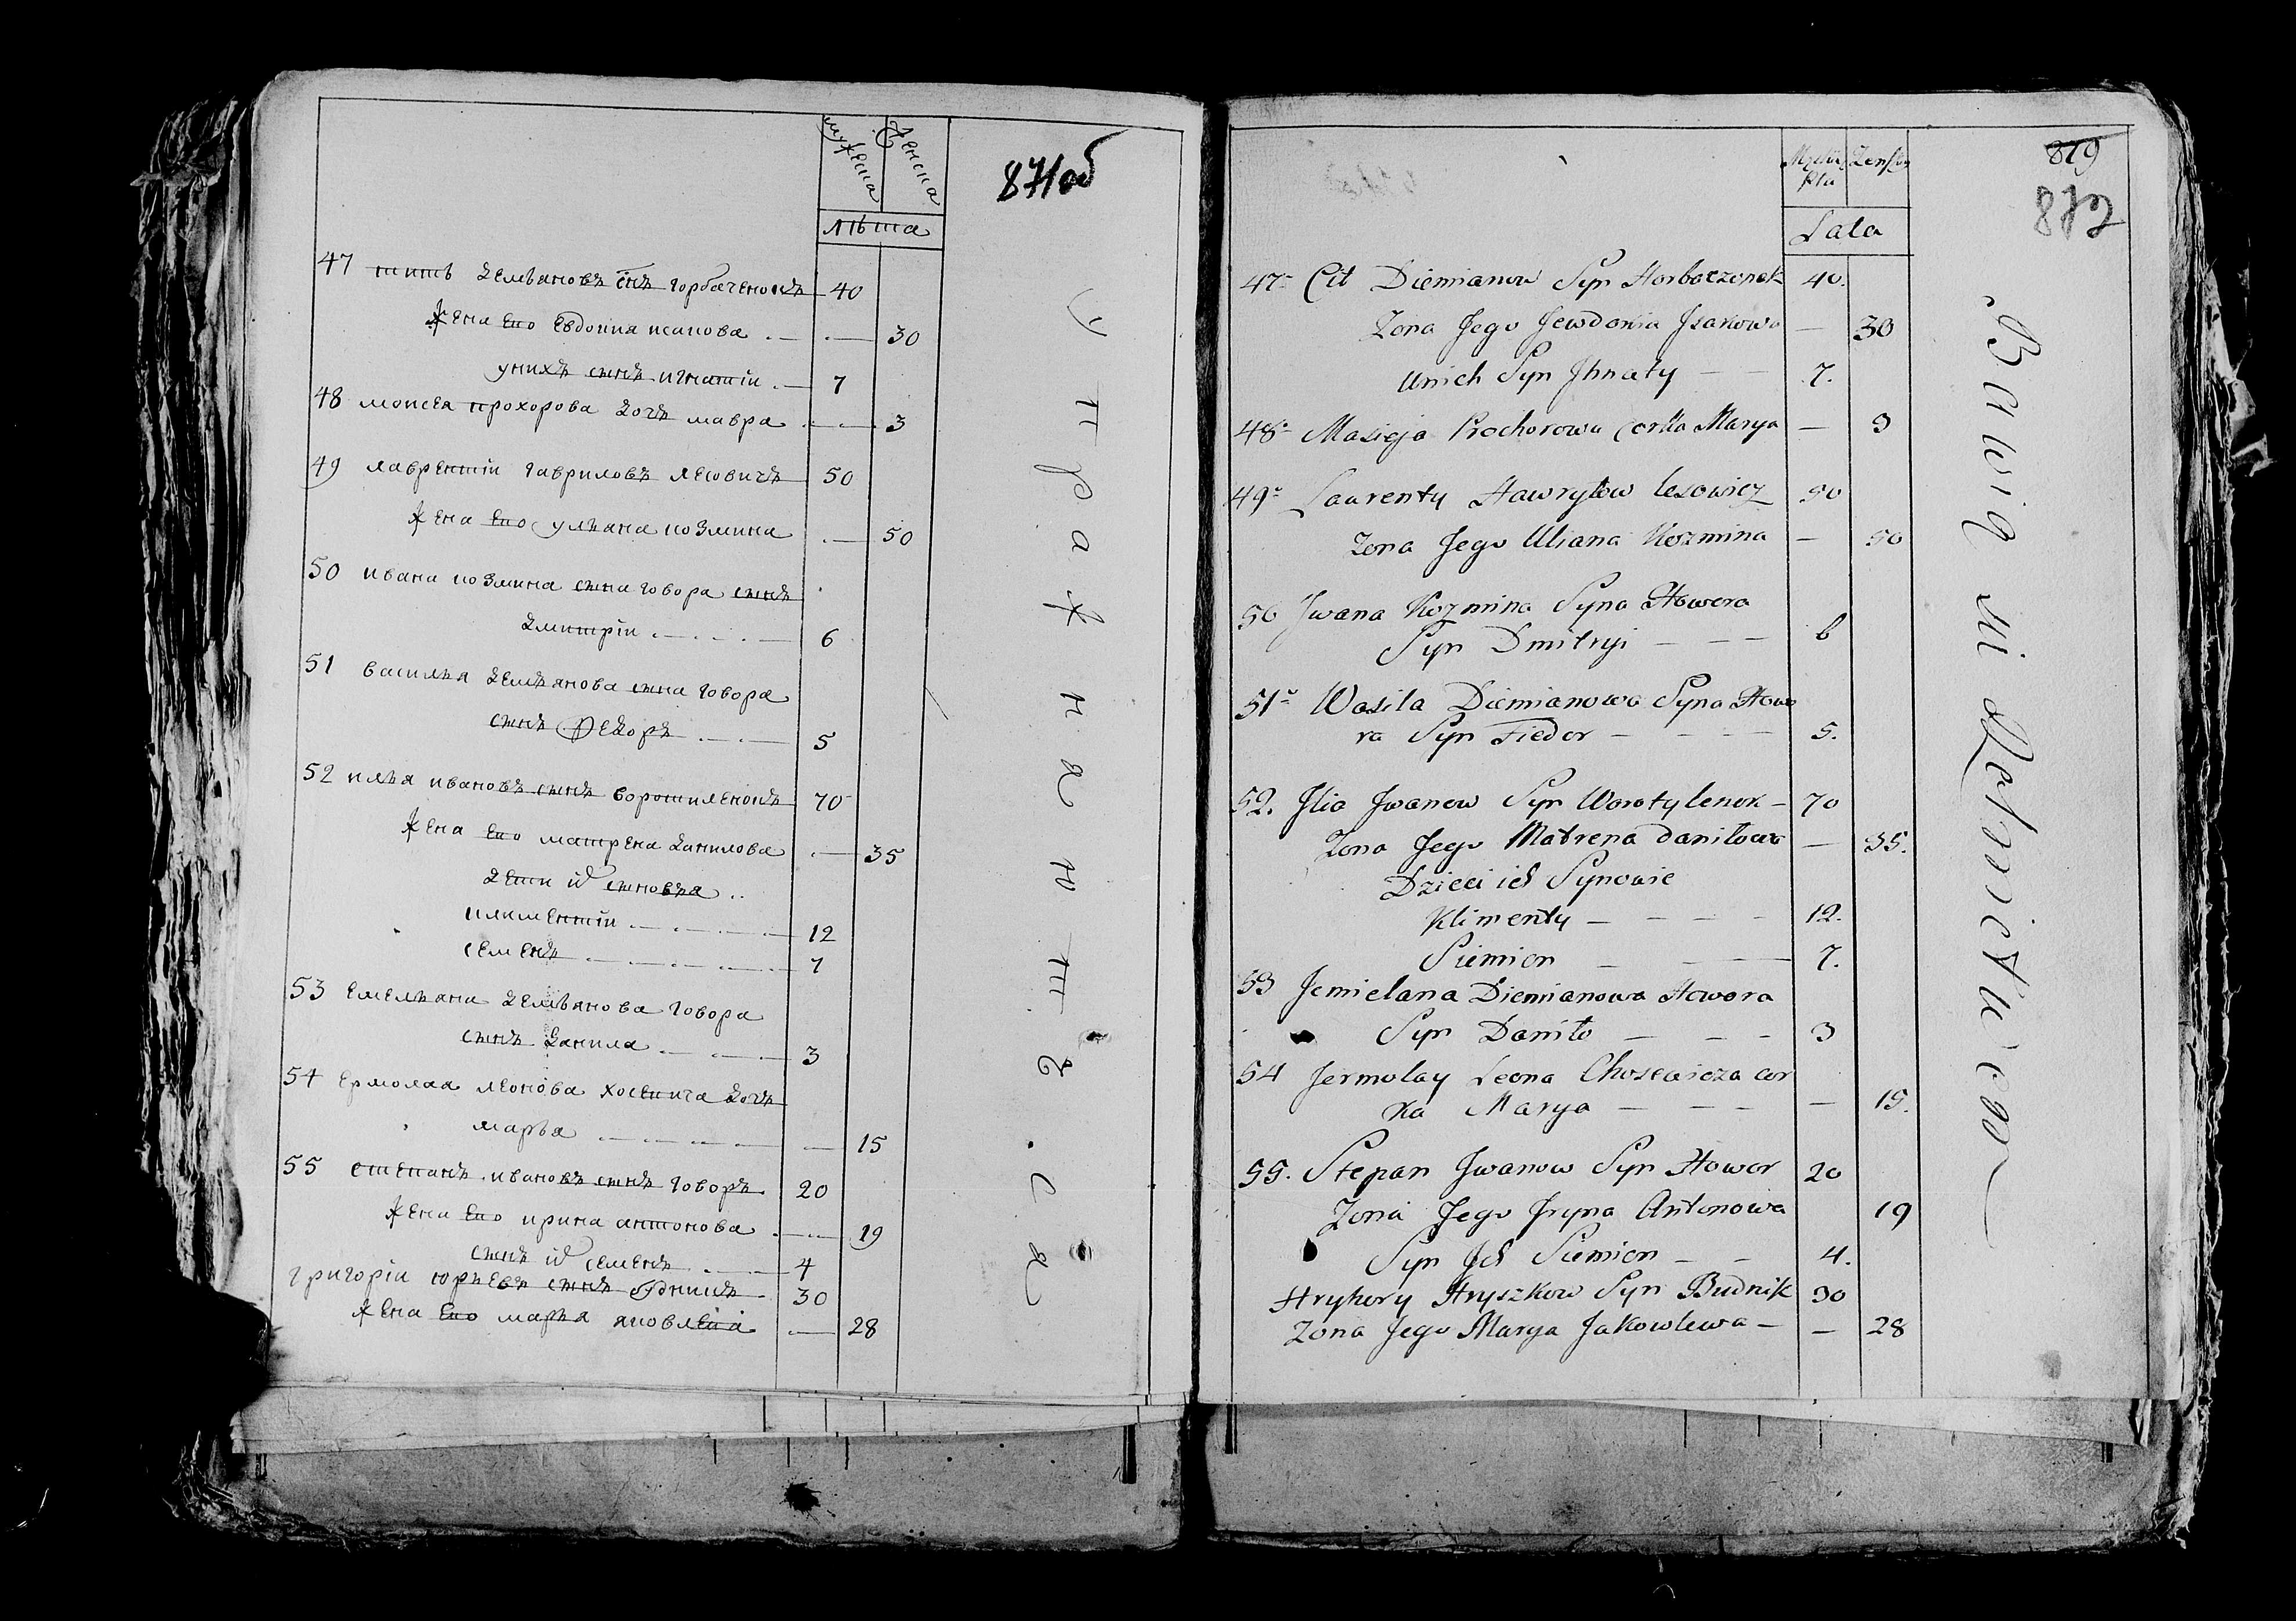 мужеска женска
лѣта
871об
47 титъ демьяновъ снъ горбаченокъ 40
жена его Евдокия исакова 30
унихъ сынъ игнатiи 7
48 моисея прохорова дочъ мавра 3
49 лаврентiи гавриловъ лесовичъ 50
жена его ульяна козмина 50
50 ивана козмина сына говора сынъ
дмитрiи 6
51 василья демьянова сына говора
сынъ Федоръ 5
52 илья ивановъ сынъ воротиленокъ 70
жена его матрена данилова 35
дети их сыновья
климентiи 12
семенъ 7
53 емельяна демьянова говора
сынъ данила 3
54 ермолая леонова хосевича дочъ
марья 15
55 степанъ ивановъ сынъ говоръ 20
жена его ирина антонова 19
сынъ их семенъ 4
григорiи юрьевъ сынъ будникъ 30
жена его марья яковлева 28
упражняютъся
Męzka Zenska
Lata
819
872
47 Cit Diemianow Syn Horbaczonek 40.
Zona Jego Jewdokia Jsakowa — 30
Unich Syn Jhnaty — — 7.
48 Masieja Prochorowa Corka Marya — 3
49 Laurenty Hawryłow Lesowicz 50
Zona Jego Uliana Kozmina — 50
50 Jwana Kozmina Syna Howora
Syn Dmitryi — — — 6
51 Wasila Diemianowa Syna Howo
ra Syn Fiedor — — — — 5.
52. Jlia Jwanow Syn Worotylenok — 70
Zona Jego Matrena Daniłowa — 35.
Dzieci ich Synowie
Klimenty — — — — 12.
Siemion — — 7.
53 Jemielana Diemianowa Howora
Syn Daniło — — — 3
54 Jermolay Leona Chosewicza cor
ka Marya — — — — 15.
55. Stepan Jwanow Syn Howor 20
Zona Jego Jryna Antonowa 19
Syn Jch Siemion — — 4.
Hryhory Hryszkow Syn Budnik 30
Zona Jego Marya Jakowlewa — — 28
Bawią się